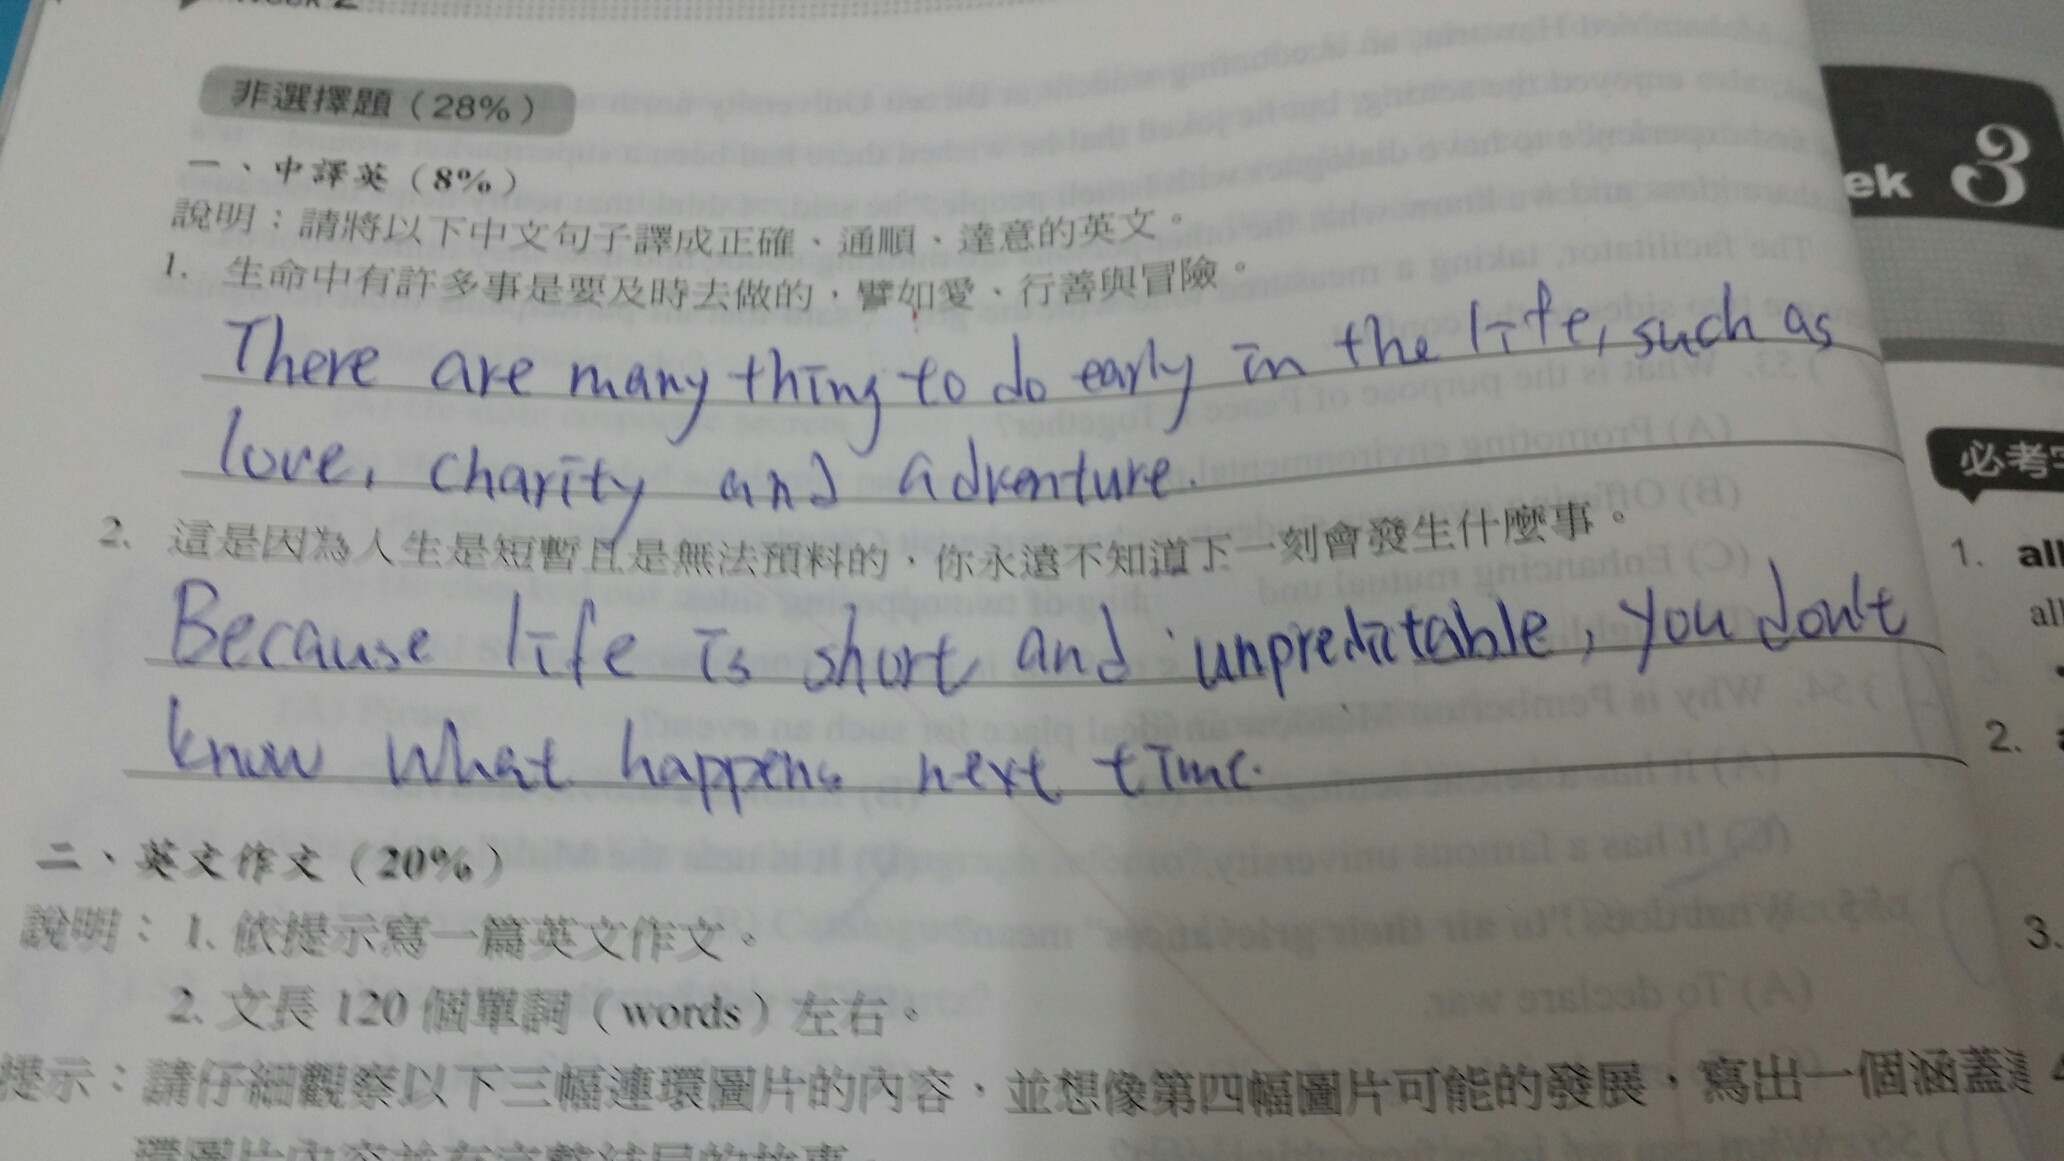 Week 2
非選擇題（28%）
一、中譯英（8%）
說明：請將以下中文句子譯成正確、通順、達意的英文。
1. 生命中有許多事是要及時去做的，譬如愛、行善與冒險。
There are many thing to do early in the life, such as
love, charity and adventure.
2. 這是因為人生是短暫且是無法預料的，你永遠不知道下一刻會發生什麼事。
Because life is short and unpreditable, you don't
know what happens next time.
二、英文作文（20%）
說明：1. 依提示寫一篇英文作文。
2. 文長 120 個單詞（words）左右。
提示：請仔細觀察以下三幅連環圖片的內容，並想像第四幅圖片可能的發展，寫出一個涵蓋
環圖片內容並有完整結局的故事。
ek 3
必考
1. all
all
2. a
3.
4